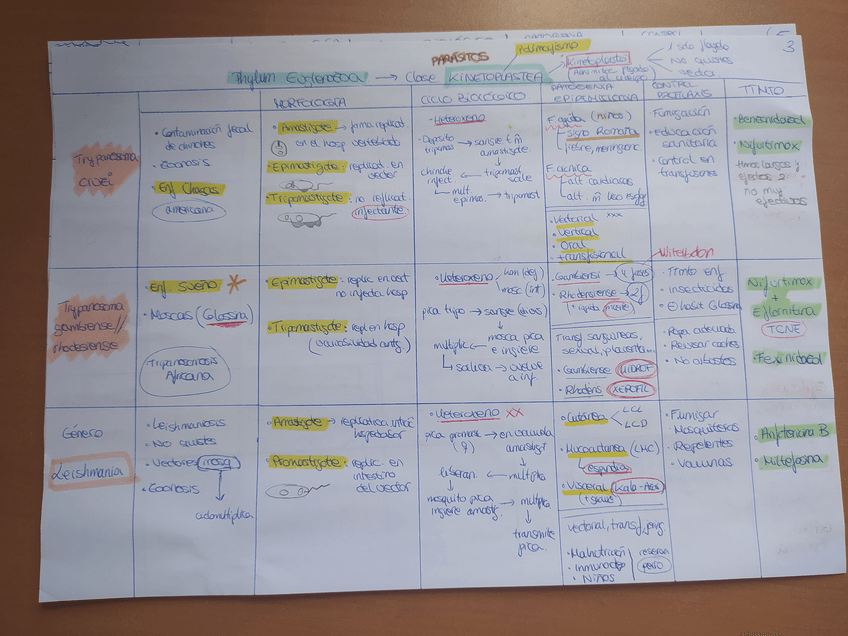 3
PARÁSITOS
polimorfismo
Phylum Euglenozoa → clase KINETOPLASTEA
Kinetoplasto
1 solo flagelo
No quistes
MORFOLOGÍA
CICLO BIOLÓGICO
PATOGENIA
EPIDEMIOLOGÍA
CONTROL
PROFILAXIS
TTINTO
Trypanosoma
cruzi
• Contaminación fecal
de chinches
• Zoonosis
• Enf Chagas
americana
• Amastigote → forma replicat.
en el hosp vertebrado
• Epimastigote: replicat. en
vector
• Tripomastigote: no replicat
infectante
• Heteroxeno
Deposito
tripomas → sangre
amastigote
tripomast
sale
chinche
infect.
mult.
epimas. → tripomast
F. aguda (niños)
signo Romaña
fiebre, meningoenc
F. crónica
alt cardiacas
• Vectorial xxx
• Vertical
• Oral
• transfusional
• Fumigación
• educación
sanitaria
• Control en
transfusiones
Benznidazol
• Nifurtimox
ttmos largos y
efectos 2
no muy
efectivos
Trypanosoma
gambiense//
rhodesiense
• Enf. Sueño *
• Moscas (Glossina)
Tripanosomosis
Africana
• Epimastigote: replic en vect
no infecta hosp
• Tripomastigote: repl en hosp
(variabilidad antg)
• Heteroxeno
pica tripo → sangre
mosca pica
e ingiere
multiplic
saliva → vuelve
a inf.
Winterbottom
• Gambiensi → 4 fases
• Rhodesiense → 2f
+ rápida muerte
Transf sanguíneas,
sexual, placenta...
• Gambiense HIDROF
• Rhodens XEROFIL
• Ttmto enf
• insecticidas
• Exhibit Glossina
• Ropa adecuada
• Revisar coches
• No arbustos
Nifurtimox
+
Eflornitina
TCNE
• Fexinidazol
Género
Leishmania
• Leishmaniosis
• No quistes
• Vectores mosq
• Zoonosis
ciclomultiplica
• Amastigote → replicativa intrac
hospedador
• Promastigote: replic. en
intestino
del vector
• Heteroxeno XX
pica promast → en vacuola
(♀) amastigot
liberan ← multiplica
mosquito pica
ingiere amastig. → multiplica
transmite
pica.
• Cutánea
LCL
LCD
• Mucocutánea (LMC)
espundia
• Visceral (Kala-Azar)
(+ grave)
vectorial, transf, jering
• Malnutrición
• inmunodep
• Niños
reserva
perro
• Fumigar
Mosquiteras
• Repelentes
• Vacunas
• Anfotericina B
• Miltefosina